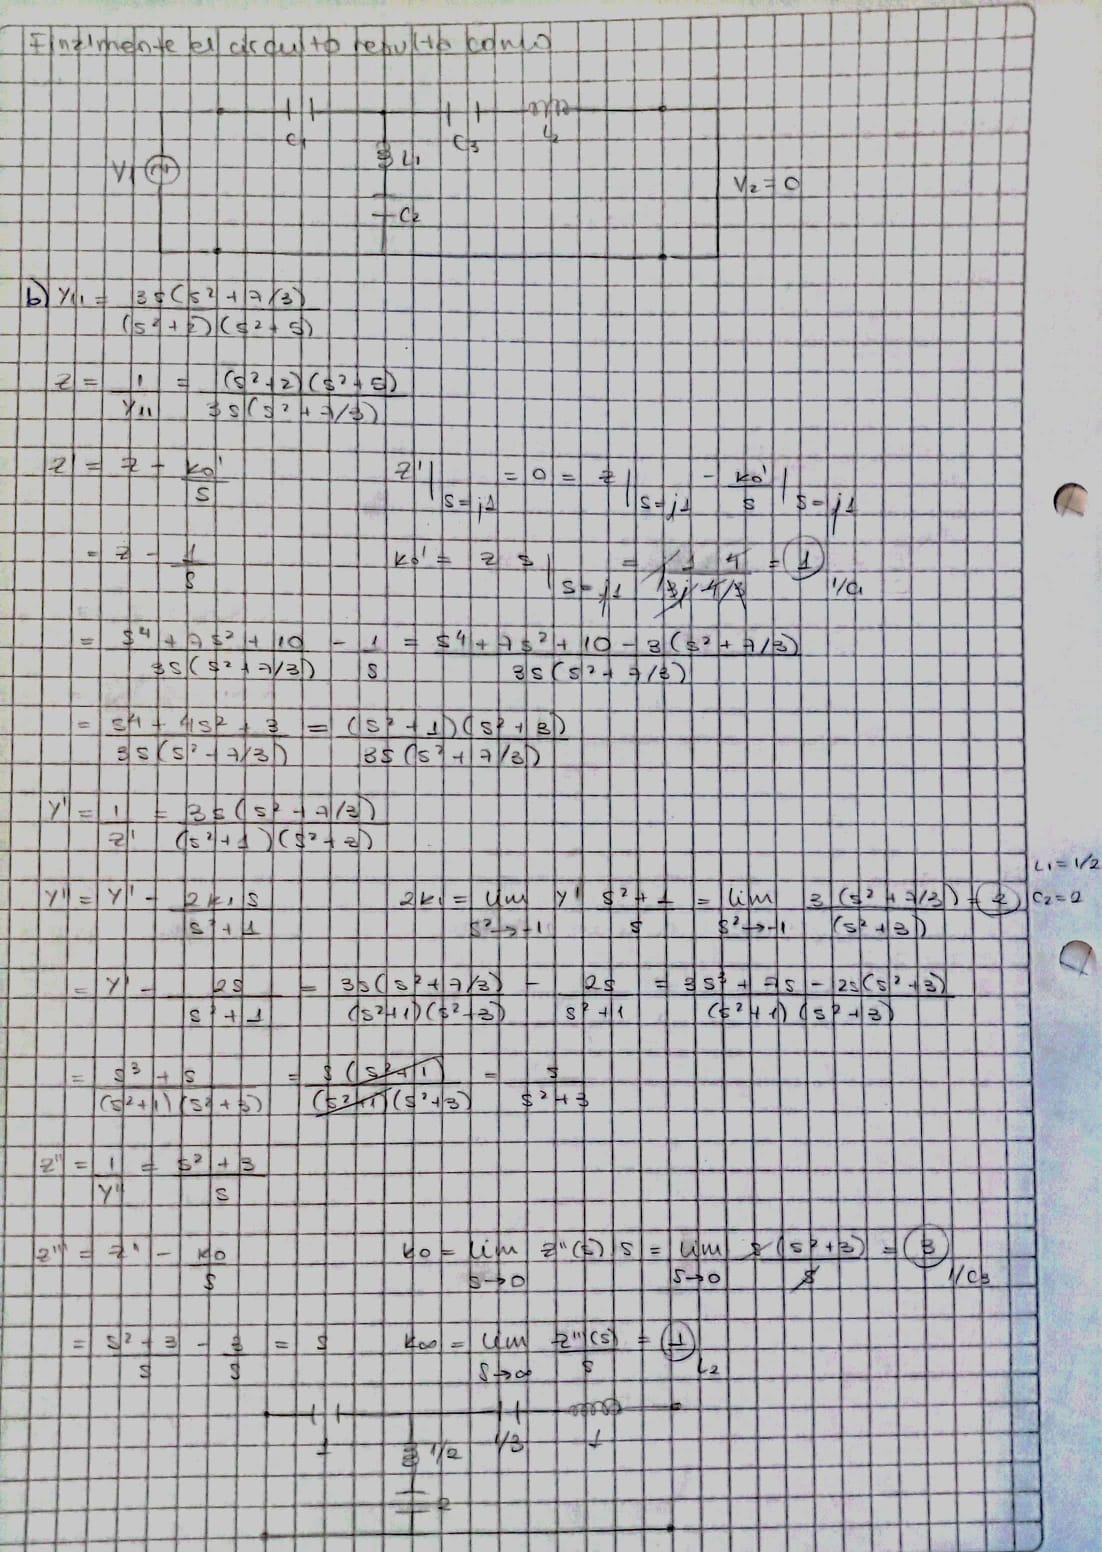 Finalmente el circuito resulta como
C1 C3 L2
L1
V1 V2 = 0
C2
b) Y11 = 3s(s² + 7/3) / (s² + 2)(s² + 5)
Z = 1/Y11 = (s²+2)(s²+5) / 3s(s² + 7/3)
Z' = Z - k0'/s Z'|s=j1 = 0 = Z|s=j1 - k0'/s|s=j1
= Z - 1/s k0' = Z s|s=j1 = 1 4 / 3 4/3 = 1 1/C1
= s⁴ + 7s² + 10 / 3s(s² + 7/3) - 1/s = s⁴ + 7s² + 10 - 3(s² + 7/3) / 3s(s² + 7/3)
= s⁴ + 4s² + 3 / 3s(s² + 7/3) = (s² + 1)(s² + 3) / 3s(s² + 7/3)
Y' = 1/Z' = 3s(s² + 7/3) / (s²+1)(s²+3)
L1 = 1/2
Y'' = Y' - 2k1 s / s² + 1 2k1 = lim s²→-1 Y' s² + 1 / s = lim s²→-1 3(s² + 7/3) / (s² + 3) = 2 C2 = 2
= Y' - 2s / s² + 1 = 3s(s² + 7/3) / (s²+1)(s²+3) - 2s / s² + 1 = 3s³ + 7s - 2s(s² + 3) / (s²+1)(s²+3)
= s³ + s / (s²+1)(s²+3) = s(s² + 1) / (s²+1)(s²+3) = s / s² + 3
Z'' = 1/Y'' = s² + 3 / s
Z''' = Z'' - k0/s k0 = lim s→0 Z''(s) s = lim s→0 s(s² + 3) / s = 3 1/C3
= s² + 3 / s - 3/s = s k∞ = lim s→∞ Z''(s) / s = 1 L2
1 1/3 1
1/2
2